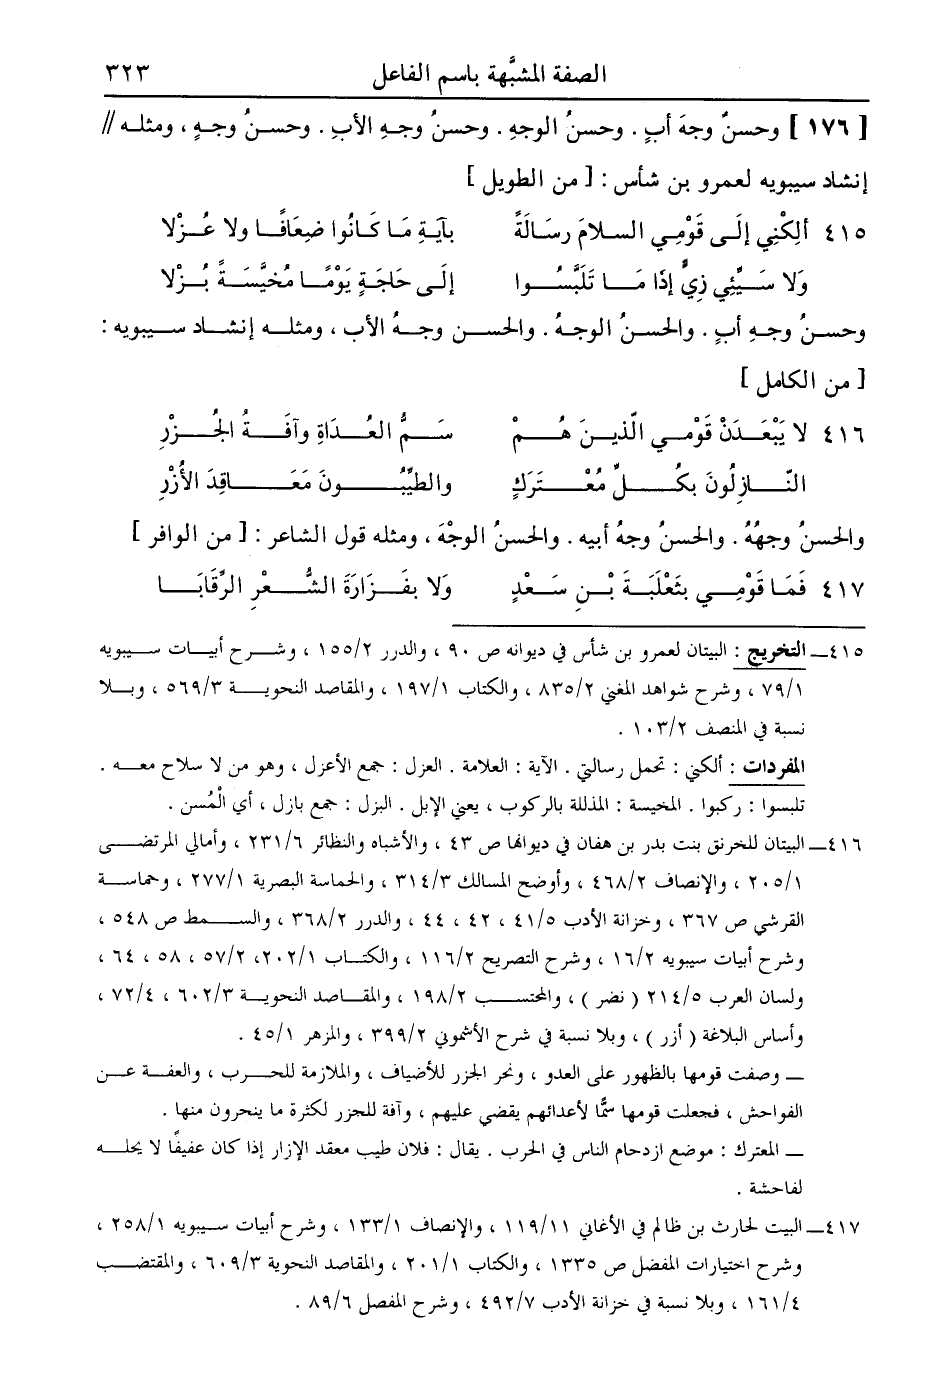 الصفة المشبَّهة باسم الفاعل ٣٢٣
[ ١٧٦ ] وحسنٌ وجهَ أبٍ . وحسنُ الوجهِ . وحسنُ وجهِ الأبِ . وحسنُ وجهٍ ، ومثله //
إنشاد سيبويه لعمرو بن شأس : [ من الطويل ]
٤١٥ ألِكْنِي إلَى قَوْمِي السلامَ رسَالَةً بآيَةِ مَا كَانُوا ضِعَافًا ولا عُزْلا
وَلا سَيِّئِي زِيٍّ إذَا مَا تَلَبَّسُوا إلَى حَاجَةٍ يَوْمًا مُخَيَّسَةً بُزْلا
وحسنُ وجهِ أبٍ . والحسنُ الوجهُ . والحسن وجهُ الأب ، ومثله إنشاد سيبويه :
[ من الكامل ]
٤١٦ لا يَبْعَدَنْ قَوْمِي الَّذِينَ هُمْ سَمُّ العُدَاةِ وآفَةُ الجُزْرِ
النَّازِلُونَ بكُلِّ مُعْتَرَكٍ والطيِّبُونَ مَعَاقِدَ الأُزْرِ
والحسنُ وجهُهُ . والحسنُ وجهُ أبيه . والحسنُ الوجْهَ ، ومثله قول الشاعر : [ من الوافر ]
٤١٧ فَمَا قَوْمِي بثَعْلَبَةَ بْنِ سَعْدٍ وَلا بفَزَارَةَ الشُّعْرِ الرِّقَابَا
٤١٥ــ التخريج : البيتان لعمرو بن شأس في ديوانه ص ٩٠ ، والدرر ١٥٥/٢ ، وشرح أبيات سيبويه
٧٩/١ ، وشرح شواهد المغني ٨٣٥/٢ ، والكتاب ١٩٧/١ ، والمقاصد النحوية ٥٦٩/٣ ، وبلا
نسبة في المنصف ١٠٣/٢ .
المفردات : ألكني : تحمل رسالتي . الآية : العلامة . العزل : جمع الأعزل ، وهو من لا سلاح معه .
تلبسوا : ركبوا . المخيسة : المذللة بالركوب ، يعني الإبل . البزل : جمع بازل ، أي الْمُسن .
٤١٦ــ البيتان للخرنق بنت بدر بن هفان في ديوانها ص ٤٣ ، والأشباه والنظائر ٢٣١/٦ ، وأمالي المرتضى
٢٠٥/١ ، والإنصاف ٤٦٨/٢ ، وأوضح المسالك ٣١٤/٣ ، والحماسة البصرية ٢٧٧/١ ، وحماسة
القرشي ص ٣٦٧ ، وخزانة الأدب ٤١/٥ ، ٤٢ ، ٤٤ ، والدرر ٣٦٨/٢ ، والسمط ص ٥٤٨ ،
وشرح أبيات سيبويه ١٦/٢ ، وشرح التصريح ١١٦/٢ ، والكتاب ٢٠٢/١، ٥٧/٢ ، ٥٨ ، ٦٤ ،
ولسان العرب ٢١٤/٥ ( نضر ) ، والمحتسب ١٩٨/٢ ، والمقاصد النحوية ٦٠٢/٣ ، ٧٢/٤ ،
وأساس البلاغة ( أزر ) ، وبلا نسبة في شرح الأشموني ٣٩٩/٢ ، والمزهر ٤٥/١ .
ــ وصفت قومها بالظهور على العدو ، ونحر الجزر للأضياف ، والملازمة للحرب ، والعفة عن
الفواحش ، فجعلت قومها سمًّا لأعدائهم يقضي عليهم ، وآفة للجزر لكثرة ما ينحرون منها .
ــ المعترك : موضع ازدحام الناس في الحرب . يقال : فلان طيب معقد الإزار إذا كان عفيفًا لا يحله
لفاحشة .
٤١٧ــ البيت لحارث بن ظالم في الأغاني ١١٩/١١ ، والإنصاف ١٣٣/١ ، وشرح أبيات سيبويه ٢٥٨/١ ،
وشرح اختيارات المفضل ص ١٣٣٥ ، والكتاب ٢٠١/١ ، والمقاصد النحوية ٦٠٩/٣ ، والمقتضب
١٦١/٤ ، وبلا نسبة في خزانة الأدب ٤٩٢/٧ ، وشرح المفصل ٨٩/٦ .